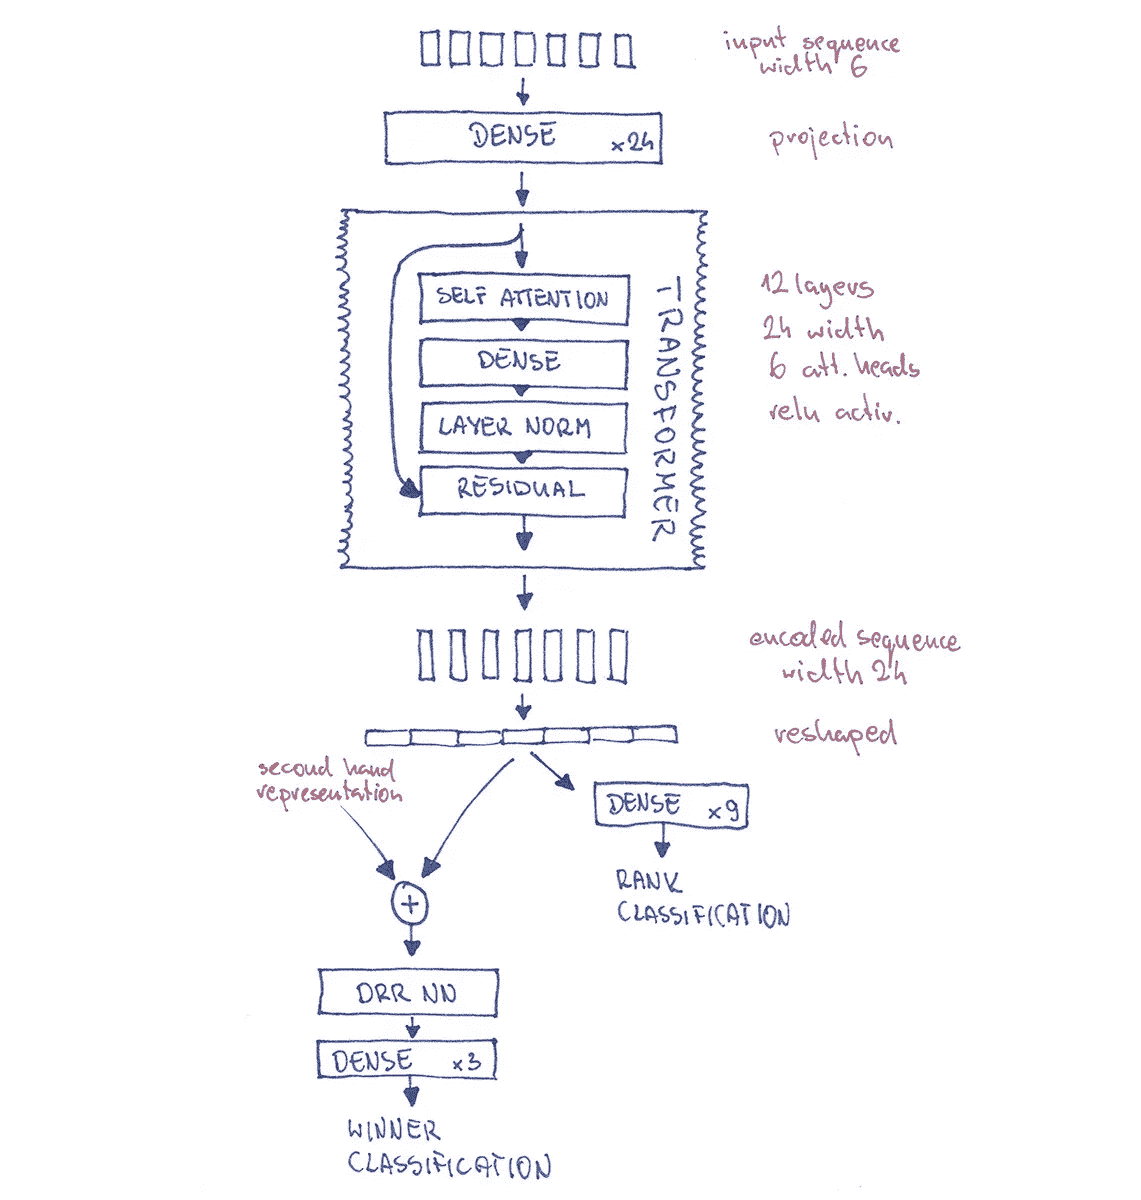 input sequence
width 6
DENSE ×24
projection
SELF ATTENTION
DENSE
LAYER NORM
RESIDUAL
TRANSFORMER
12 layers
24 width
6 att. heads
relu activ.
encoded sequence
width 24
reshaped
second hand
representation
DENSE ×9
RANK
CLASSIFICATION
+
DRR NN
DENSE ×3
WINNER
CLASSIFICATION